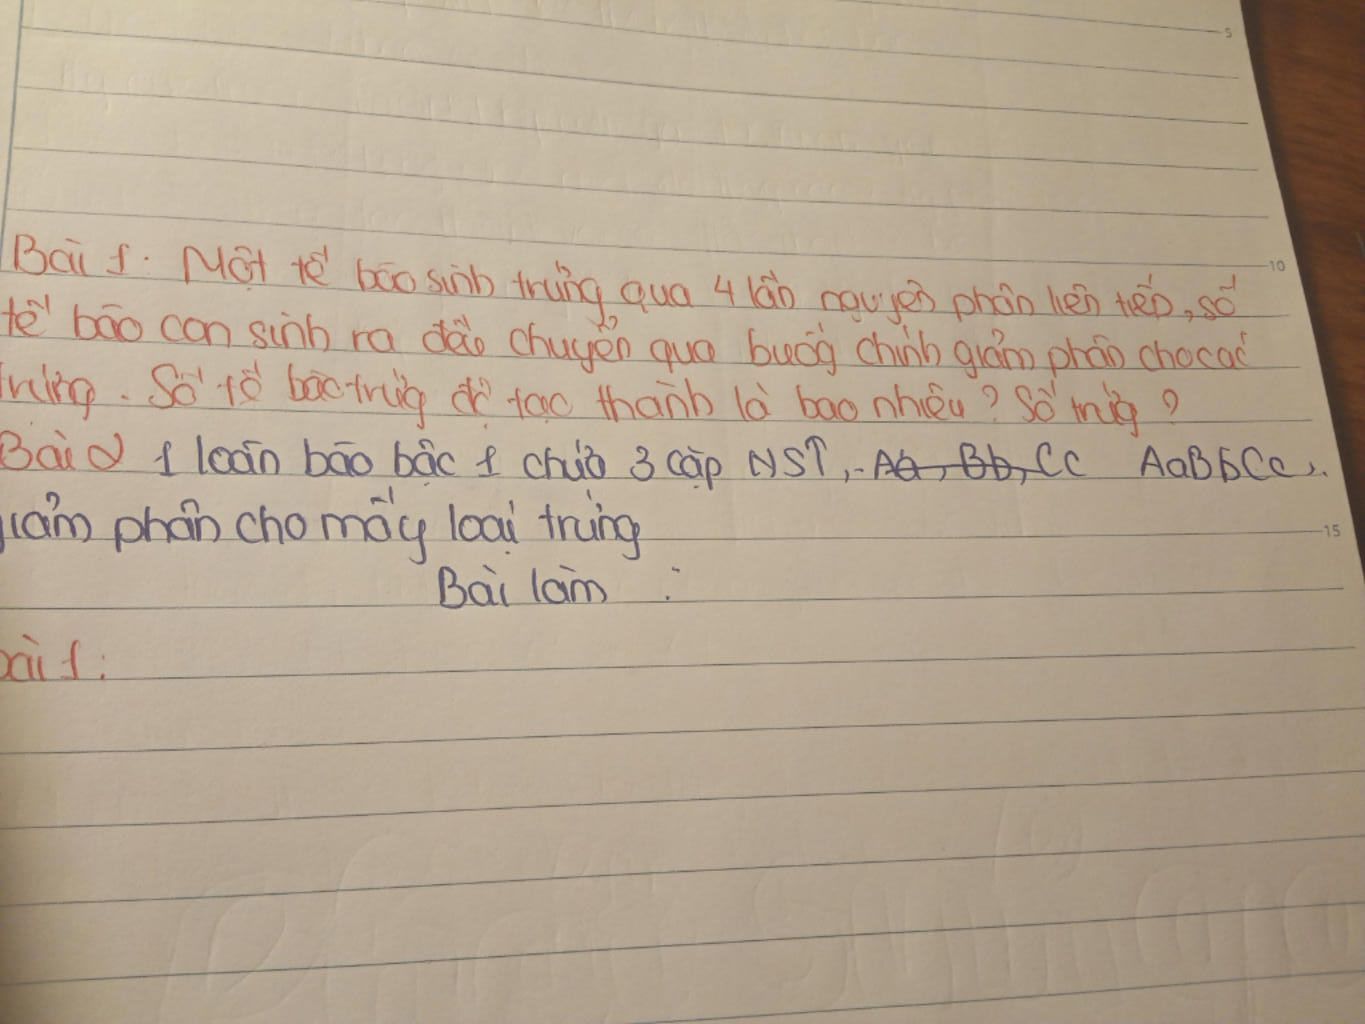 5
10
Bài 1. Một tế bào sinh trứng qua 4 lần nguyên phân liên tiếp, số
tế bào con sinh ra đều chuyển qua buồng chính giảm phân cho các
trứng. Số tế bào trứng đc tạo thành là bao nhiêu? Số trứng?
Bài 2 1 loãn bào bậc 1 chứa 3 cặp NST, Aa, Bb, Cc AaBbCc,.
giảm phân cho mấy loại trứng
15
Bài làm :
bài 1: